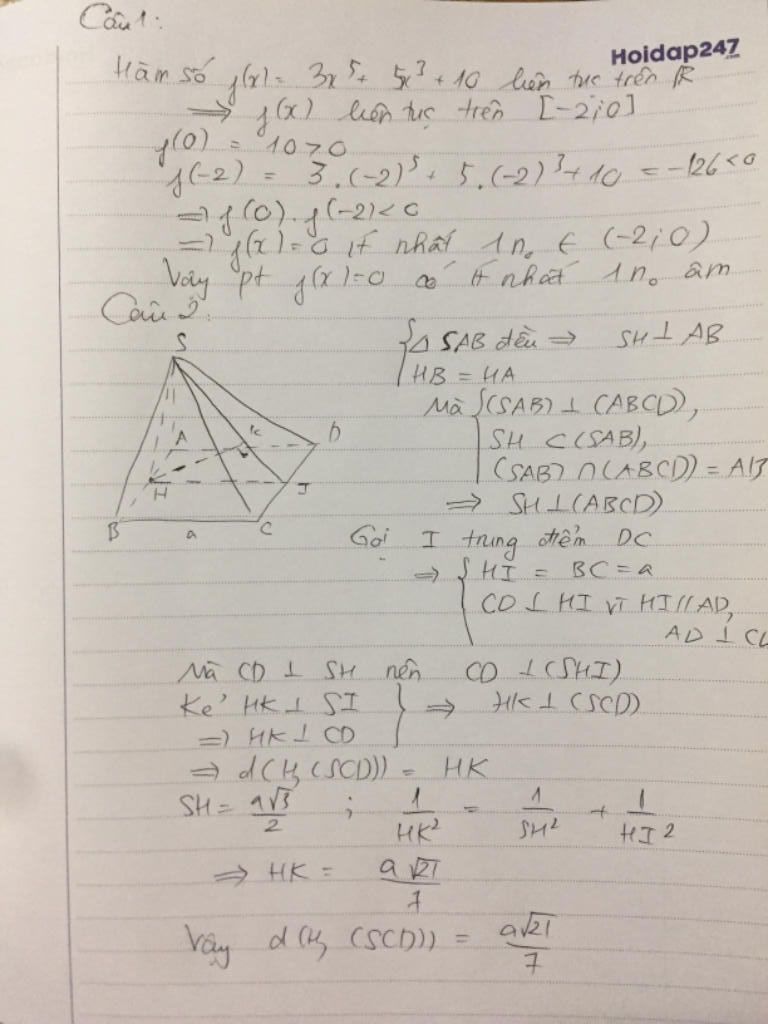 Câu 1:
Hoidap247.com
Hàm số f(x) = 3x⁵ + 5x³ + 10 liên tục trên ℝ
⟹ f(x) liên tục trên [-2;0]
f(0) = 10 > 0
f(-2) = 3.(-2)⁵ + 5.(-2)³ + 10 = -126 < 0
⇒ f(0).f(-2) < 0
⇒ f(x) = 0 ít nhất 1 n₀ ∈ (-2;0)
Vậy pt f(x)=0 có ít nhất 1 n₀ âm
Câu 2:
S
A
K
D
H
I
B
a
C
{ Δ SAB đều ⇒ SH ⊥ AB
HB = HA
Mà { (SAB) ⊥ (ABCD),
SH ⊂ (SAB),
(SAB) ∩ (ABCD) = AB
⇒ SH ⊥ (ABCD)
Gọi I trung điểm DC
⇒ { HI = BC = a
CD ⊥ HI vì HI // AD,
AD ⊥ CD
Mà CD ⊥ SH nên CD ⊥ (SHI)
Kẻ HK ⊥ SI } ⇒ HK ⊥ (SCD)
⇒ HK ⊥ CD
⇒ d(H, (SCD)) = HK
SH = a√3/2 ; 1/HK² = 1/SH² + 1/HI²
⇒ HK = a√21/7
Vậy d(H, (SCD)) = a√21/7